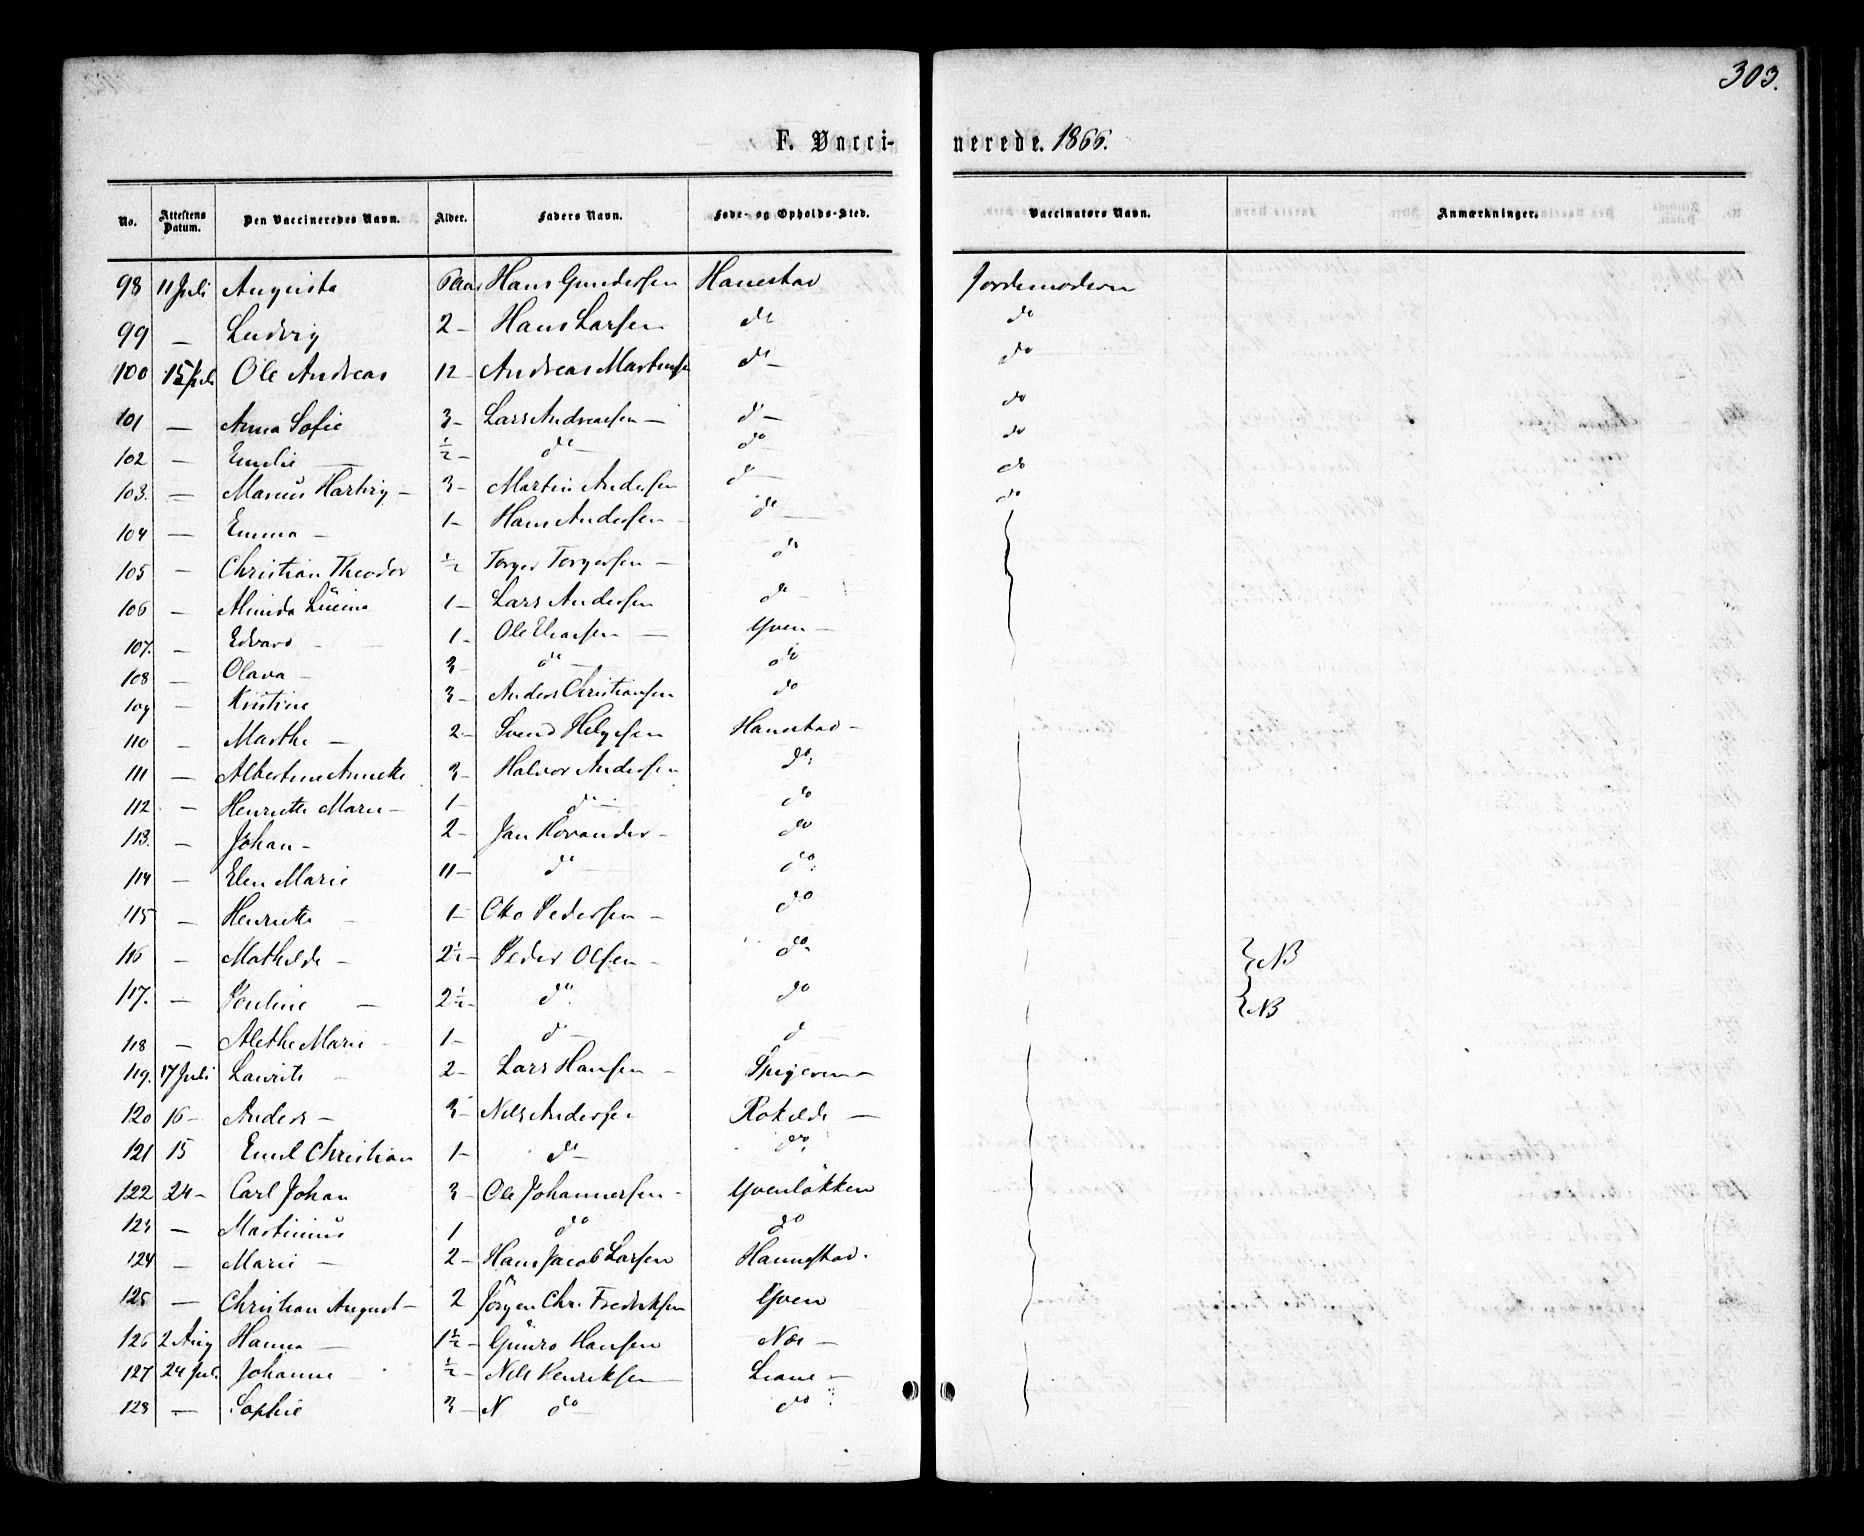 303.
F. Vacci- nerede. 1866.
No. Attestens Datum. Den Vaccineredes Navn. Alder. Faders Navn. Føde- og Opholds-Sted. Vaccinators Navn. Anmærkninger.
98 11 Juli Augusta Hans Gundersen Hanestad Jordemoderen
99 — Ludvig 2 – Hans Larsen do do
100 15 Juli Ole Andreas 12 Andreas Martinsen do – do
101 — Anna Sofie 3 – Lars Andreasen — do — do
102 — Emilie — ½ – do – do do
103. — Marius Hartvig – 3 – Martin Andersen do — do
104 — Emma – 1 – Hans Andersen do — do
105 – Christian Theodor ½ Torger Torgersen – do
106 – Minda Lucina 1 – Lars Andersen do –
107. – Edvard – 1 – Ole Eliassen — Yven –
108 – Olava – 3 – do – do
109 – Kristine 3 – Anders Christiansen do
110 – Marthe – 2 – Svend Helgesen Hanestad –
111 – Albertine Annette 3 – Halvor Andersen do
112 – Henriette Marie – 1 – do – do
113. – Johan – 2 – Jan – do
114 – Elen Marie 11 – do – do
115 – Henriette – 1 – Otto Pedersen – do
116 – Mathilde – 2½ – Peder Olsen – do NB
117. – Pauline — 2½ – do do NB
118 – Alethe Marie – 1 – do – do
119. 17 Juli Laurits – 2 – Lars Hansen – Spigeren –
120 16 – Anders – 3 – Nels Andersen Rokilde —
121 15 Emil Christian 1 – do – do
122 24 – Carl Johan 3 – Ole Johannesen – Yvenløkken
123 — Martinius 1 do do
124 – Marie – 2 – Hans Jacob Larsen Hannestad.
125 — Christian August – 2 Jørgen Chr. Fredriksen Yven
126 2 Aug Hanna — 1½ – Guuro Hansen Næs —
127 24 Juli Johanne – ½ – Nils Henriksen — Liane –
128 — Sophie 3 – N do – do